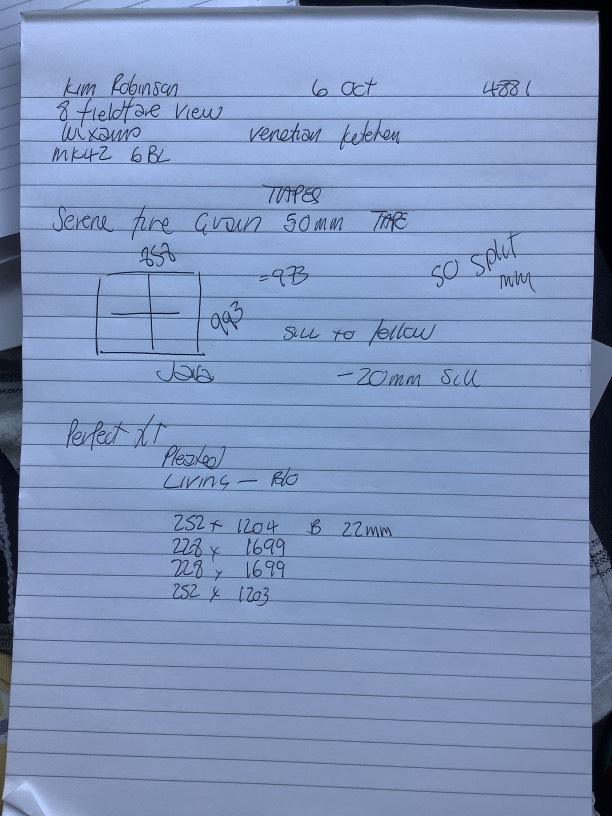 Kim Robinson 6 Oct 4881
8 fieldfare view
wixams venetian kitchen
MK42 6BL
TAPES
Serene fine Grain 50mm TAPE
858
=973
50 split
mm
993
Sill to follow
Java
-20mm Sill
Perfect XT
Pleated
Living -
252 x 1204 B 22mm
228 x 1699
228 x 1699
252 x 1203